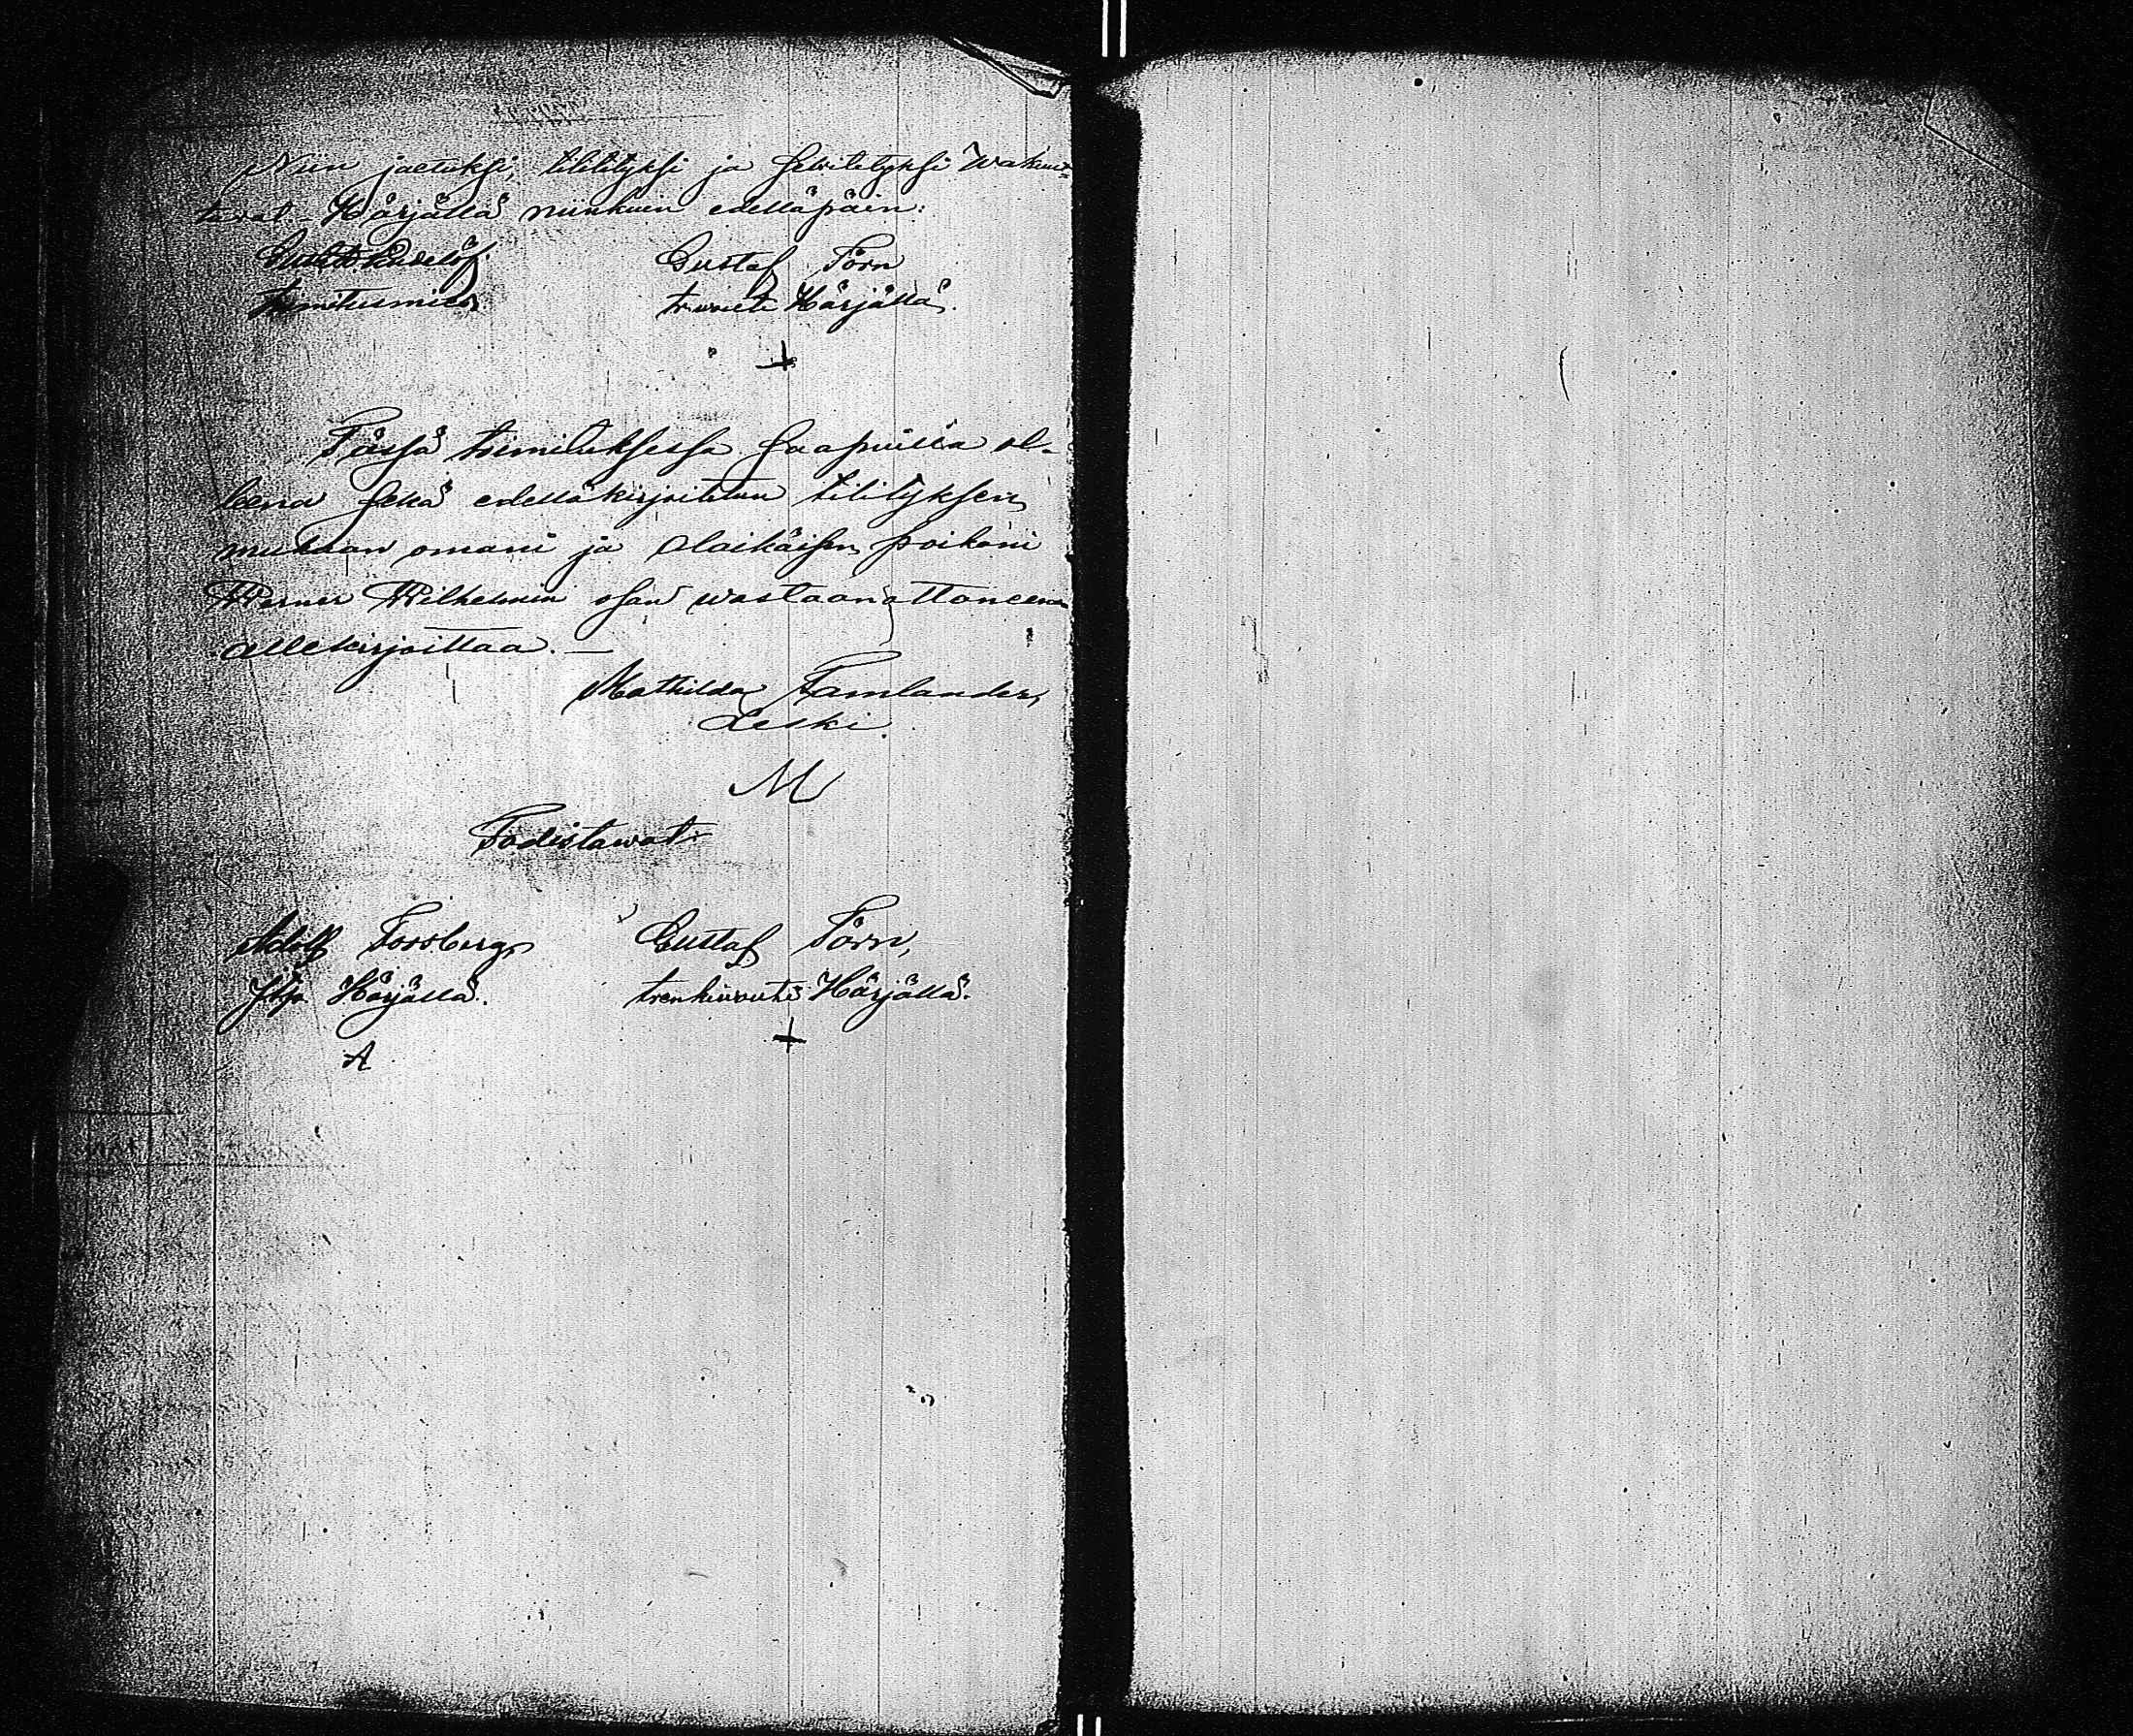 Niin jaetuksi, tilitetyksi ja selvitetyksi Wakuut-
tavat - Härjällä niinkuin edelläpäin:
Gustaf Törn
toimitusmies
tr. vouti Härjällä.
+
Tässä toimituksessa saapuilla ol-
leena sekä edelläkirjoitetun tilityksen
mukaan omani ja alaikäisen poikani
Werner Wilhelmin osan wastaanottaneena
allekirjoittaa. —
Mathilda Tamlander,
Leski.
M
Todistawat
Adolf Forsberg, Gustaf Törn,
Härjällä. trenkivouti Härjällä.
A +